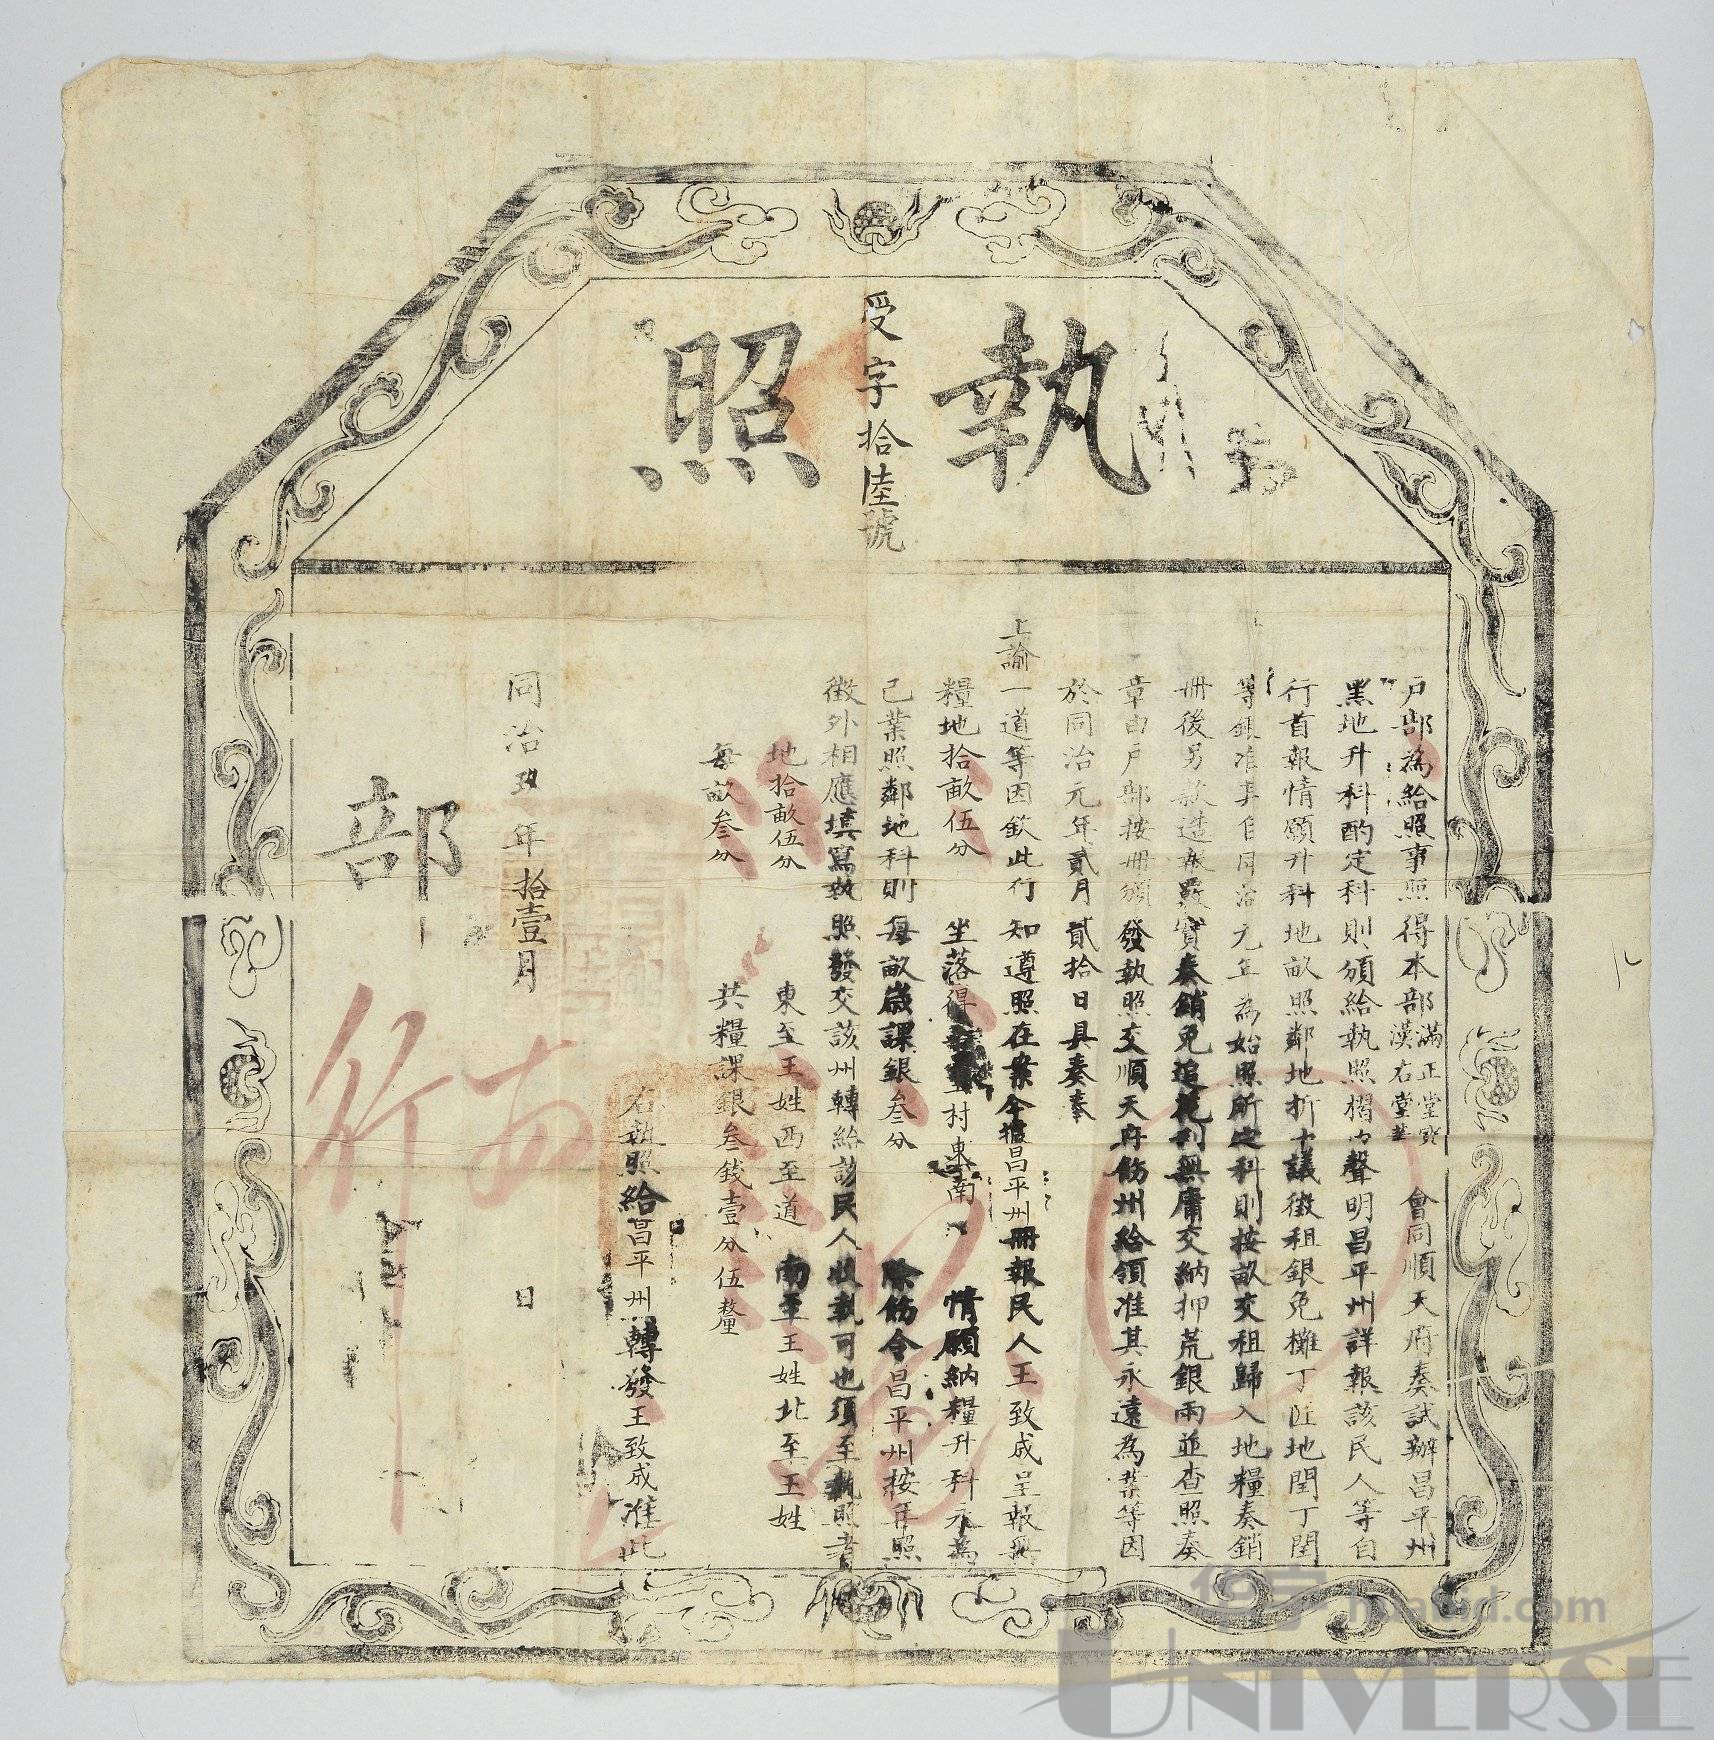 執照
受字拾陸號
戶部為給照事照得本部滿正堂寶漢右堂 會同順天府奏試辦昌平州
黑地升科酌定科則頒給執照摺內聲明昌平州詳報該民人等自
行首報情願升科地畝照鄰地折十議徵租銀免攤丁匠地閏丁閏
等銀准其自同治元年為始照所定科則按畝交租歸入地糧奏銷
冊後另款造報覈實奏銷免追花利無庸交納押荒銀兩並查照奏
章由戶部按冊頒發執照交順天府飭州給領准其永遠為業等因
於同治元年貳月貳拾日具奏奉
上諭一道等因欽此行知遵照在案今據昌平州冊報民人王致成呈報無
糧地拾畝伍分 坐落得 村東南 情願納糧升科永為
己業照鄰地科則每畝歲課銀叁分 除飭令昌平州按年照
徵外相應填寫執照發交該州轉給該民人收執可也須至執照者
地拾畝伍分 東至王姓西至道 南至王姓北至王姓
每畝叁分 共糧課銀叁錢壹分伍釐
右執照給昌平州轉發王致成准此
同治玖年拾壹月 日
部
行
华宇 huabid.com
UNIVERSE